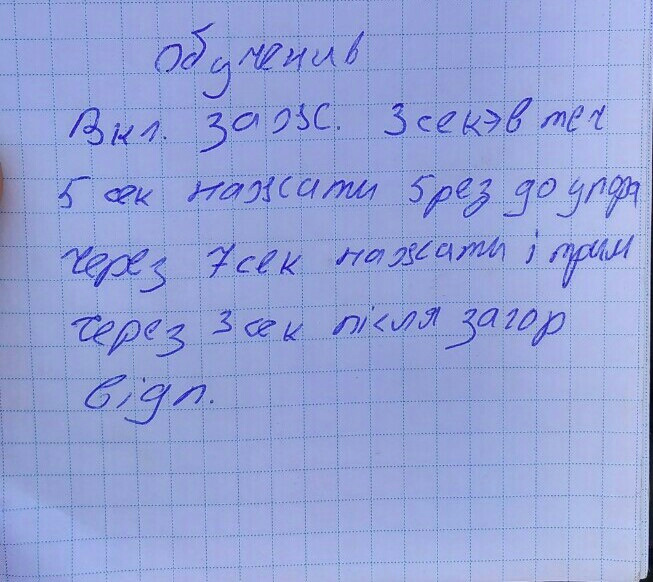 Обученив
Вкл. заж. 3сек→в теч
5 сек нажати 5рез до упора
через 7сек нажати і трим
через 3сек після загор
відп.